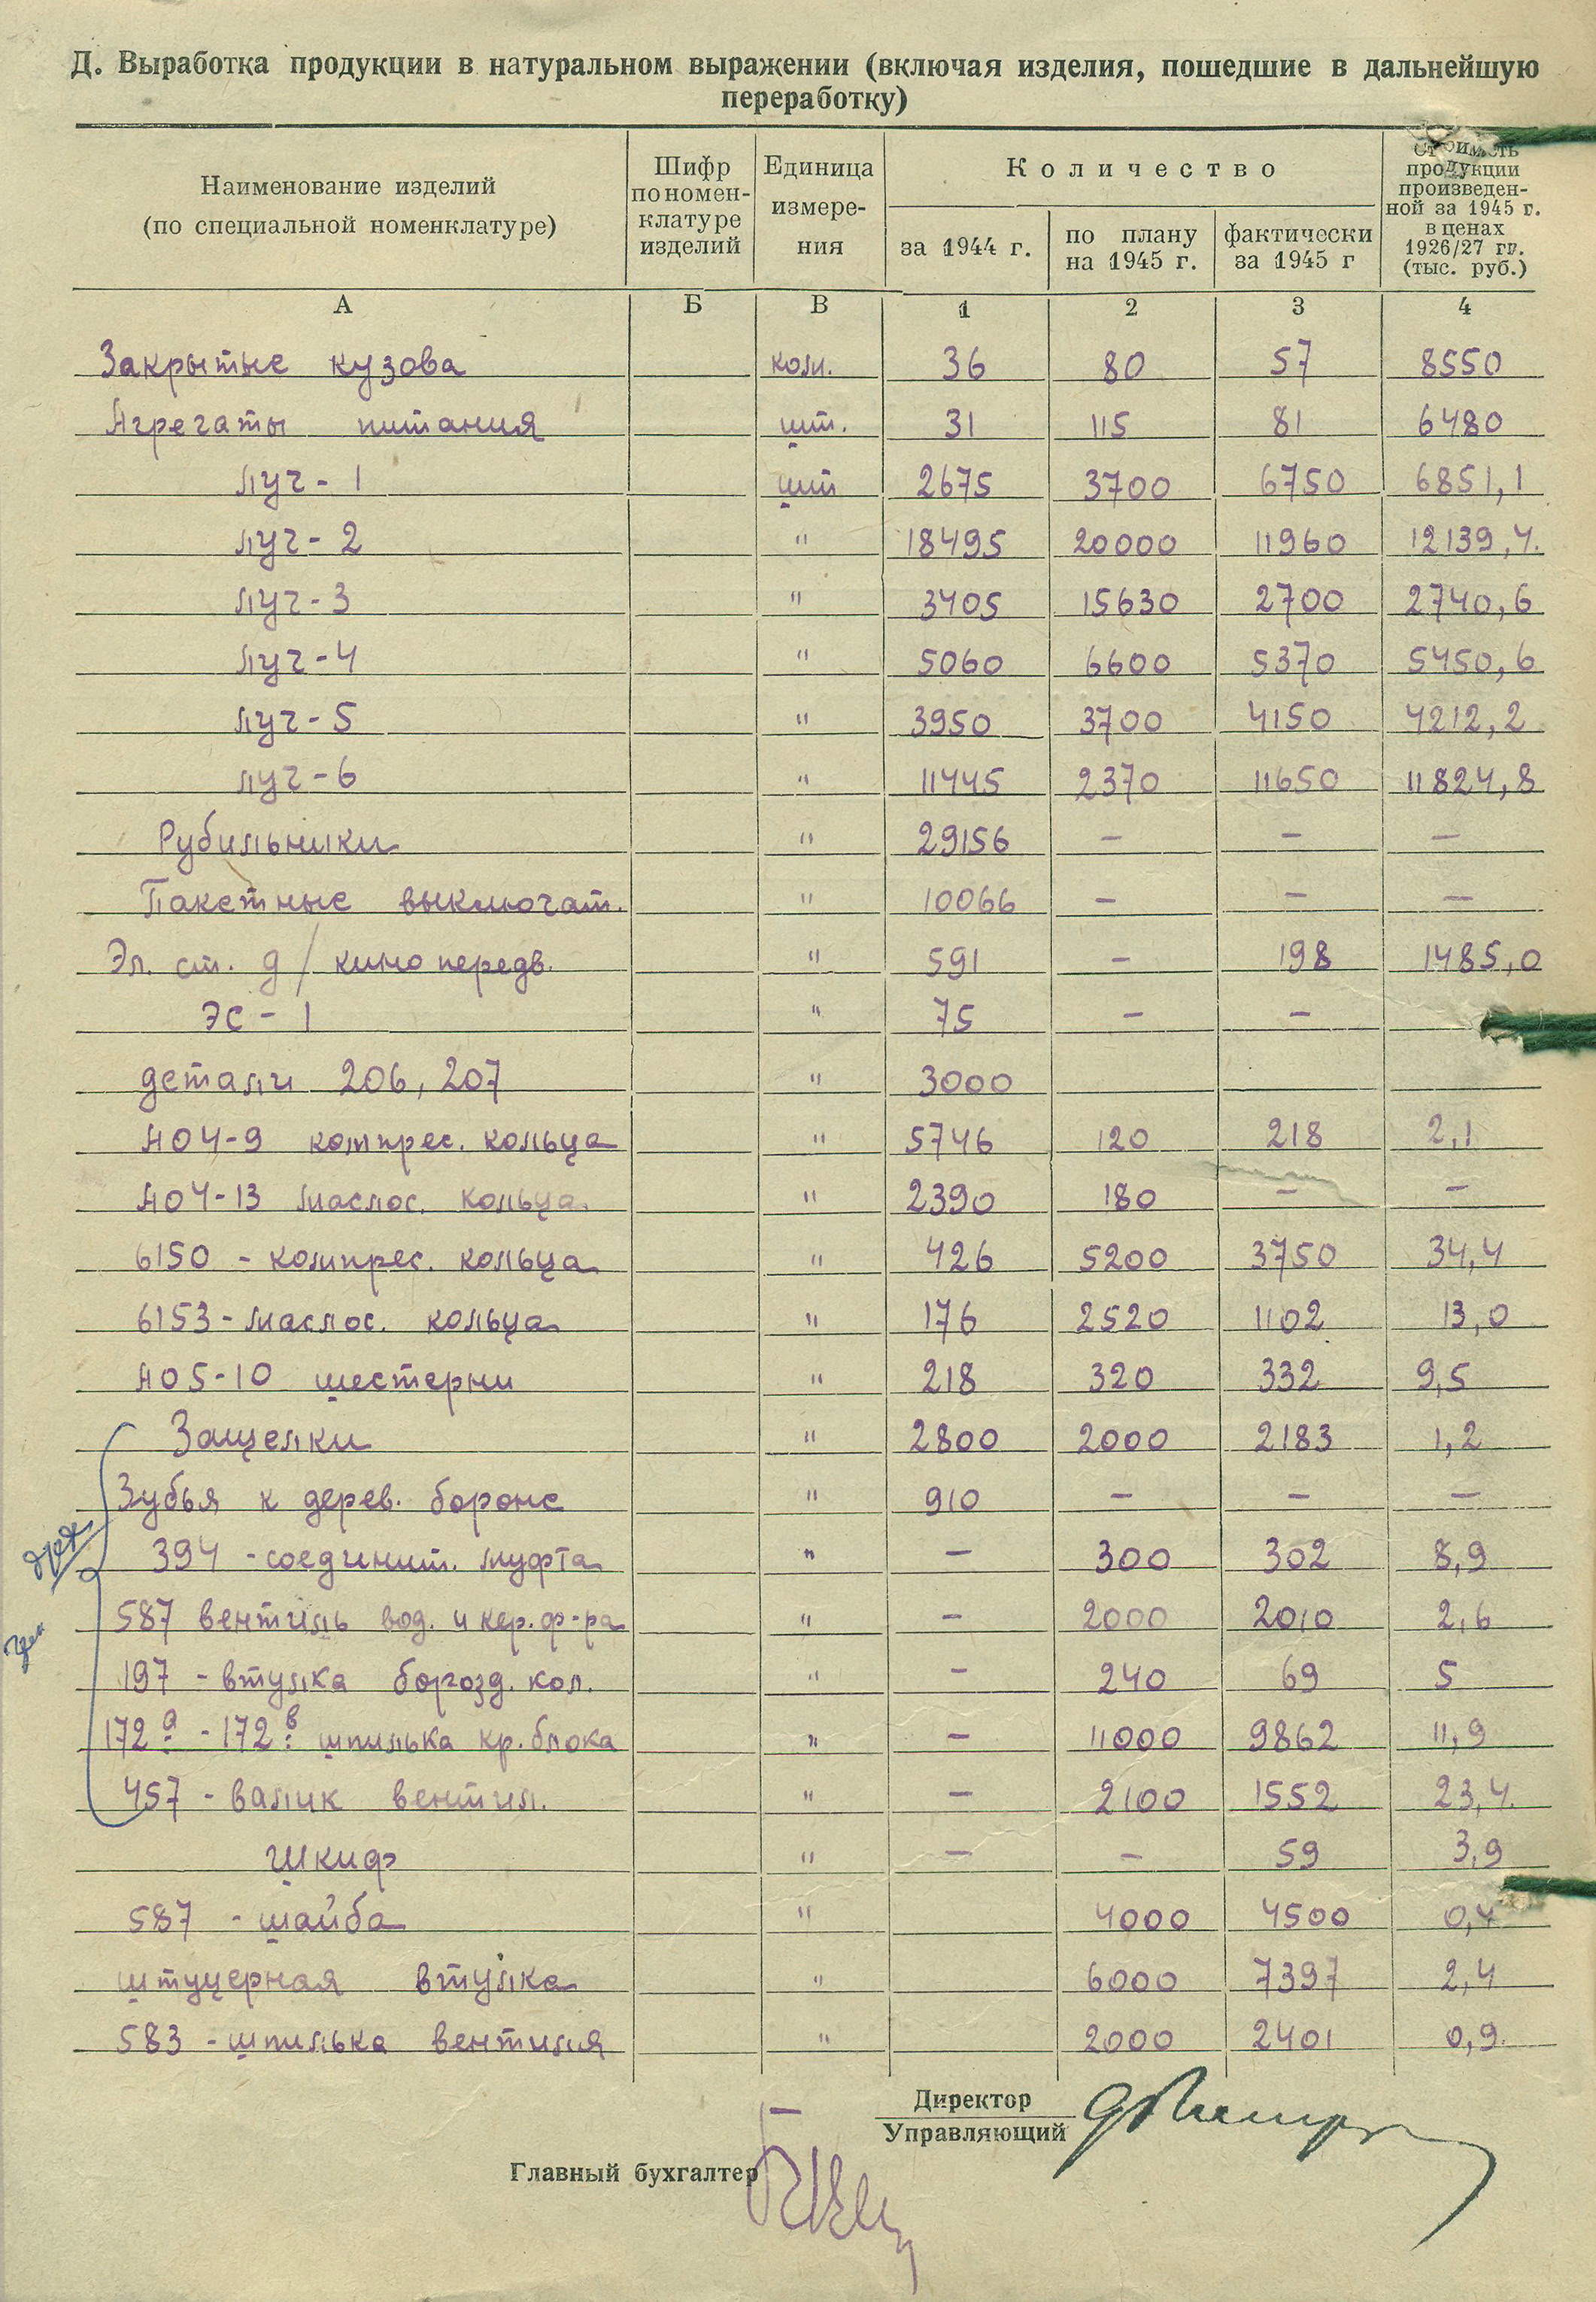 Д. Выработка продукции в натуральном выражении (включая изделия, пошедшие в дальнейшую
переработку)
Наименование изделий
(по специальной номенклатуре)
Шифр
по номен-
клатуре
изделий
Единица
измере-
ния
Количество
за 1944 г.
по плану
на 1945 г.
фактически
за 1945 г
Стоимость
продукции
произведен-
ной за 1945 г.
в ценах
1926/27 гг.
(тыс. руб.)
А Б В 1 2 3 4
Закрытые кузова ком. 36 80 57 8550
Агрегаты питания шт. 31 115 81 6480
Луч-1 шт 2675 3700 6750 6851,1
Луч-2 " 18495 20000 11960 12139,4.
Луч-3 " 3405 15630 2700 2740,6
Луч-4 " 5060 6600 5370 5450,6
Луч-5 " 3950 3700 4150 4212,2
Луч-6 " 11445 2370 11650 11824,8
Рубильники " 29156 — — —
Пакетные выключат. " 10066 — — —
Эл. ст. д/кино передв. " 591 — 198 1485,0
ЭС-1 " 75 — —
детали 206, 207 " 3000
А04-9 компрес. кольца " 5746 120 218 2,1
А04-13 маслос. кольца " 2390 180 — —
6150 - компрес. кольца " 426 5200 3750 34,4
6153 - маслос. кольца " 176 2520 1102 13,0
А05-10 шестерни " 218 320 332 9,5
Защелки " 2800 2000 2183 1,2
Зубья к дерев. бороне " 910 — — —
394 - соединит. муфта " — 300 302 8,9
587 вентиль вод. и кер. ф-ра " — 2000 2010 2,6
197 - втулка борозд. кол. " — 240 69 5
172а - 172в шпилька кр. блока " — 11000 9862 11,9
457 - валик вентил. " — 2100 1552 23,4.
Шкиф " — — 59 3,9
587 - шайба " 4000 4500 0,4
штуцерная втулка " 6000 7397 2,4
583 - шпилька вентиля " 2000 2401 0,9.
Директор
Управляющий
Главный бухгалтер